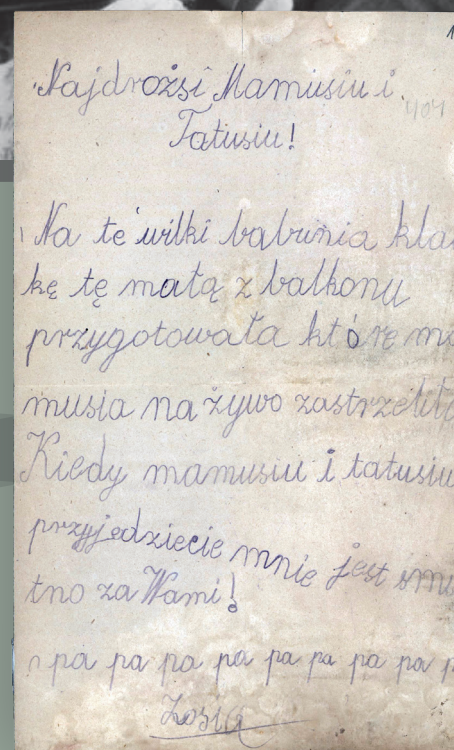 Najdrożsi Mamusiu i
Tatusiu!
404
Na te wilki babunia kla
kę tę małą z balkonu
przygotowała którę ma
musia na żywo zastrzeliła
Kiedy mamusiu i tatusiu
przyjedziecie mnie jest smu
tno za Wami!
pa pa pa pa pa pa pa pa
Zosia